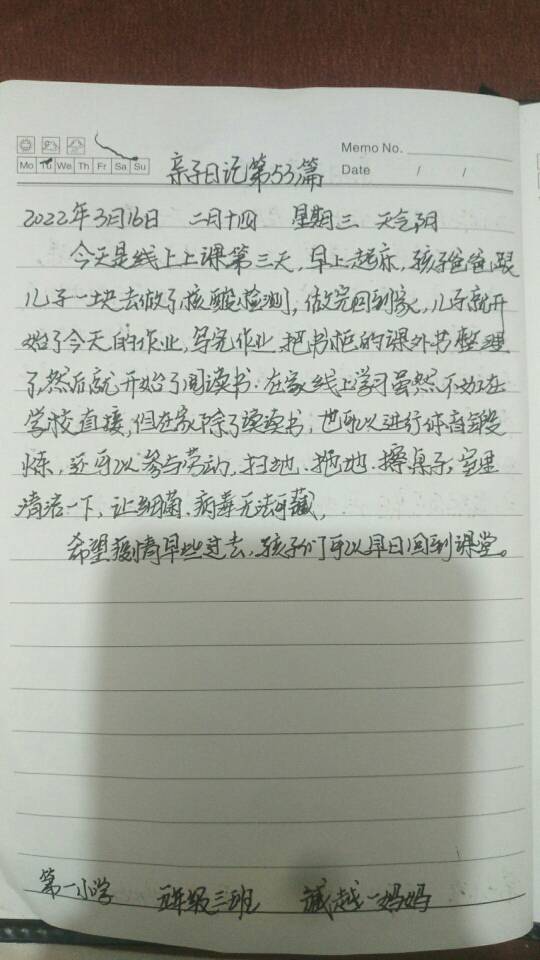 Memo No.
Mo Tu We Th Fr Sa Su
Date / /
亲子日记第53篇
2022年3月16日 二月十四 星期三 天气阴
今天是线上上课第三天,早上起床,孩子爸爸跟
儿子一块去做了核酸检测,做完回到家,儿子就开
始了今天的作业,写完作业把书柜的课外书整理
了,然后就开始了阅读书.在家线上学习虽然不如在
学校直接,但在家除了读读书,也可以进行体育锻
炼,还可以参与劳动,扫地.拖地.擦桌子,室里
清洁一下,让细菌.病毒无法可藏,
希望疫情早些过去,孩子们可以早日回到课堂。
第一小学 五年级三班 臧越一妈妈